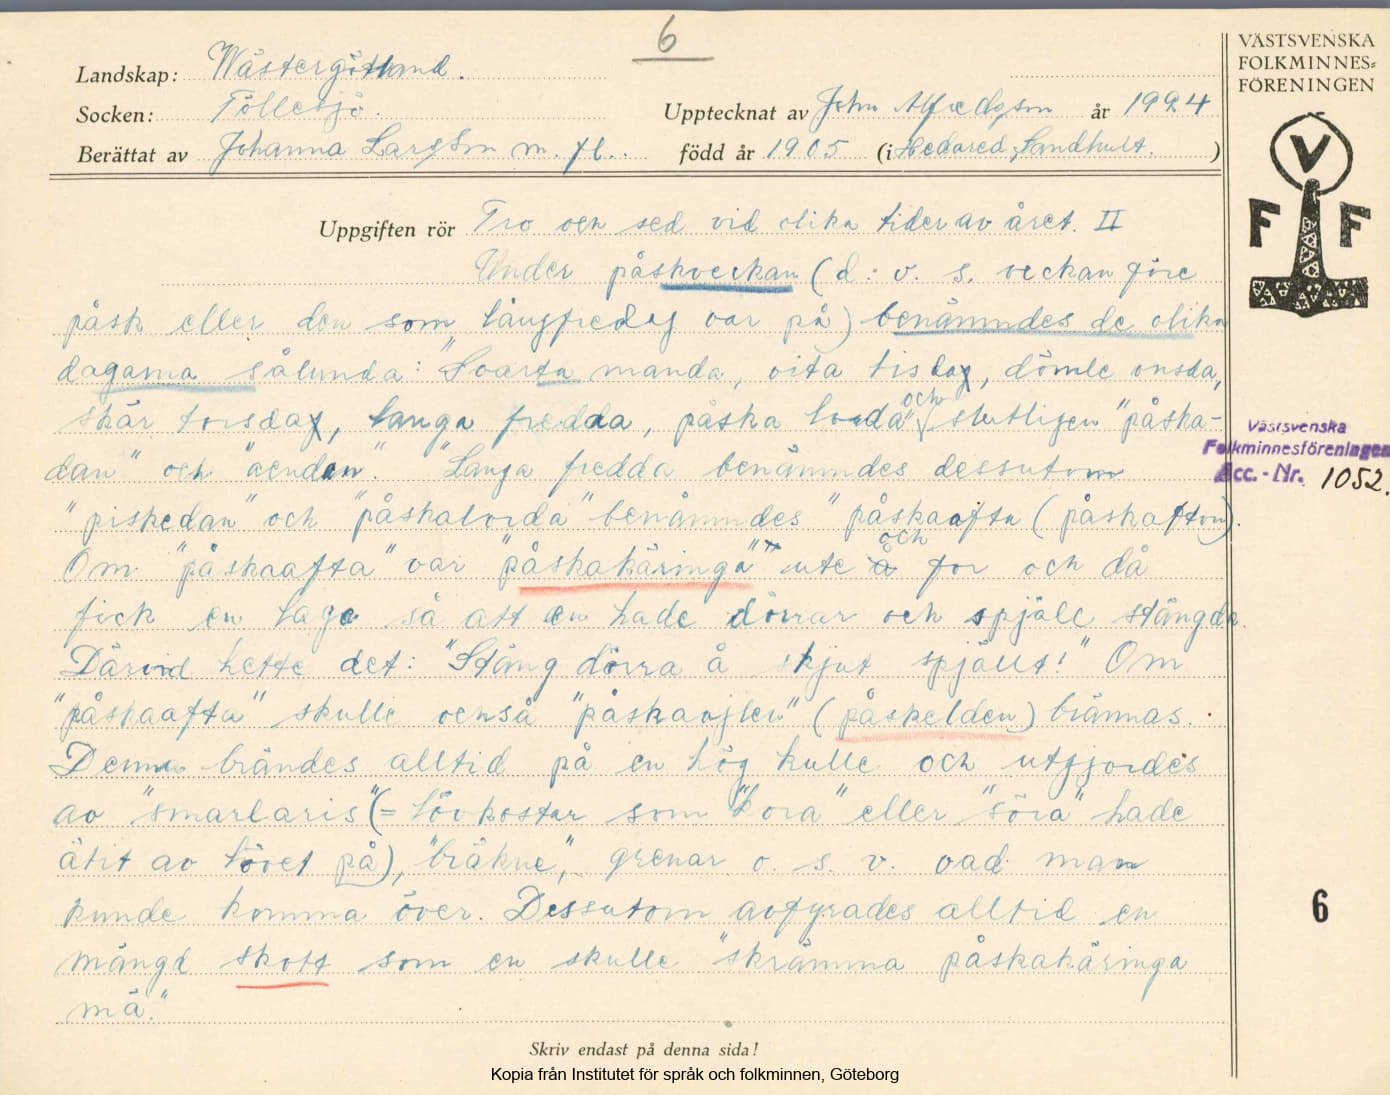 6
VÄSTSVENSKA
FOLKMINNES=
FÖRENINGEN
Landskap: Wästergötland.
Socken: Töllesjö.
Upptecknat av John Alfredsson år 1924
Berättat av Johanna Larsson m. fl..
född år 1905 (i Hedared, Sandhult.)
V
F F
Uppgiften rör Tro och sed vid olika tider av året. II
Under påskveckan (d: v. s. veckan före
påsk eller den som långfredag var på) benämndes de olika
dagarna sålunda: "Svarta manda, vita tisdag, dömle onsda,
skär torsdag, langa fredda, påska lorda" och slutligen "påska-
dan" och "aendan". "Langa fredda benämndes dessutom
"piskedan" och "påskalorda" benämndes "påskaafta (påskafton).
Om "påskaafta" var "påskakäringa" ute och for och då
fick en laga så att en hade dörrar och spjäll stängda.
Därvid hette det: "Stäng dörra å skjut spjället!" Om
"påskaafta" skulle också "påskaojlen" (påskelden) brännas.
Denna brändes alltid på en hög kulle och utgjordes
av "smarlaris" (= lövkostar som "kora" eller "söra" hade
ätit av lövet på), "bräkne", grenar o. s. v. vad man
kunde komma över. Dessutom avfyrades alltid en
mängd skott som en skulle "skrämma påskakäringa
mä."
Västsvenska
Folkminnesföreningen
Acc. - Nr. 1052.
6
Skriv endast på denna sida!
Kopia från Institutet för språk och folkminnen, Göteborg